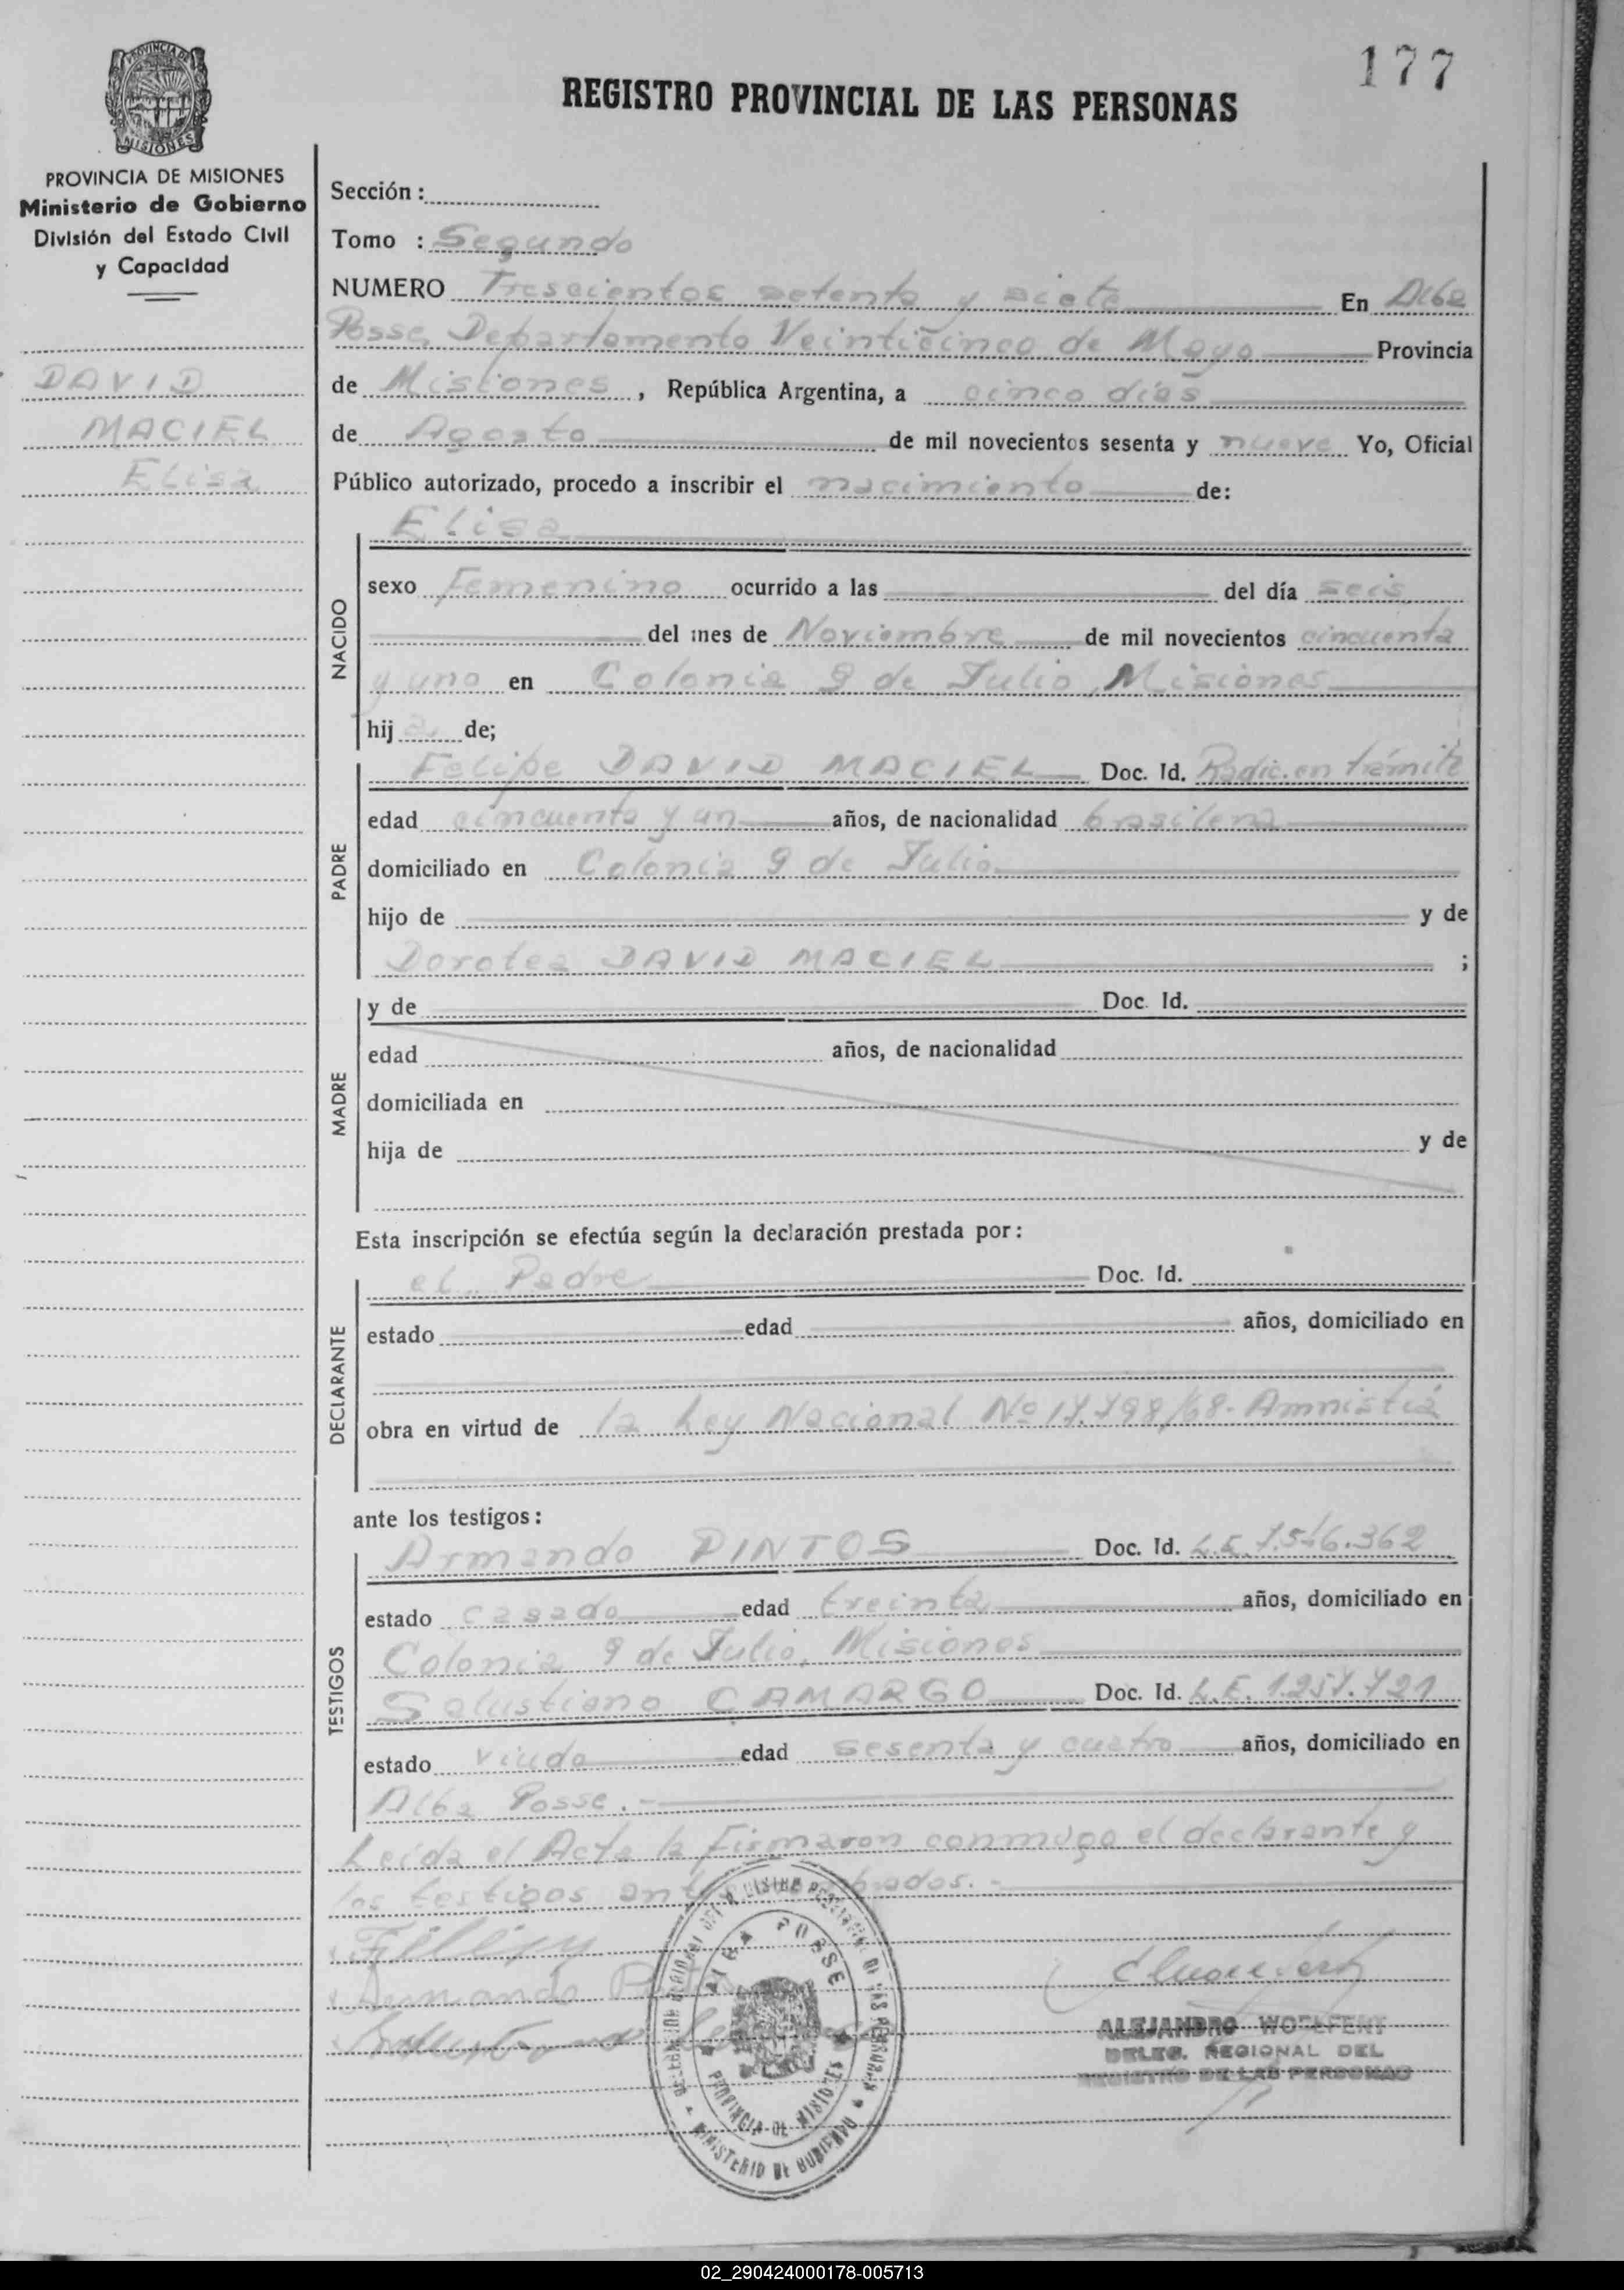 177
REGISTRO PROVINCIAL DE LAS PERSONAS
PROVINCIA DE
MISIONES
PROVINCIA DE MISIONES
Ministerio de Gobierno
División del Estado Civil
y Capacidad
DAVID
MACIEL
Elisa
Sección :
Tomo : Segundo
NUMERO Trescientos setenta y siete En Alba
Posse, Departamento Veinticinco de Mayo Provincia
de Misiones , República Argentina, a cinco días
de Agosto de mil novecientos sesenta y nueve Yo, Oficial
Público autorizado, procedo a inscribir el nacimiento de:
NACIDO
Elisa
sexo Femenino ocurrido a las del día seis
del mes de Noviembre de mil novecientos cincuenta
y uno en Colonia 9 de Julio, Misiones
hij a de;
PADRE
Felipe DAVID MACIEL Doc. Id. Radic. en trámite
edad cincuenta y un años, de nacionalidad brasilera
domiciliado en Colonia 9 de Julio
hijo de y de
Dorotea DAVID MACIEL ;
MADRE
y de Doc. Id.
edad años, de nacionalidad
domiciliada en
hija de y de
Esta inscripción se efectúa según la declaración prestada por :
DECLARANTE
el Padre Doc. Id.
estado edad años, domiciliado en
obra en virtud de la Ley Nacional Nº 17.798/68. Amnistía
ante los testigos :
TESTIGOS
Armando PINTOS Doc. Id. L.E. 7.546.362
estado casado edad treinta años, domiciliado en
Colonia 9 de Julio, Misiones
Salustiano CAMARGO Doc. Id. L.E. 1.257.721
estado viudo edad sesenta y cuatro años, domiciliado en
Alba Posse. -
Leída el Acta la firmaron conmigo el declarante y
los testigos
Armando
ALBA POSSE
PROVINCIA DE MISIONES
MINISTERIO DE GOBIERNO
ALEJANDRO
DELEG. REGIONAL DEL
REGISTRO DE LAS PERSONAS
02_290424000178-005713